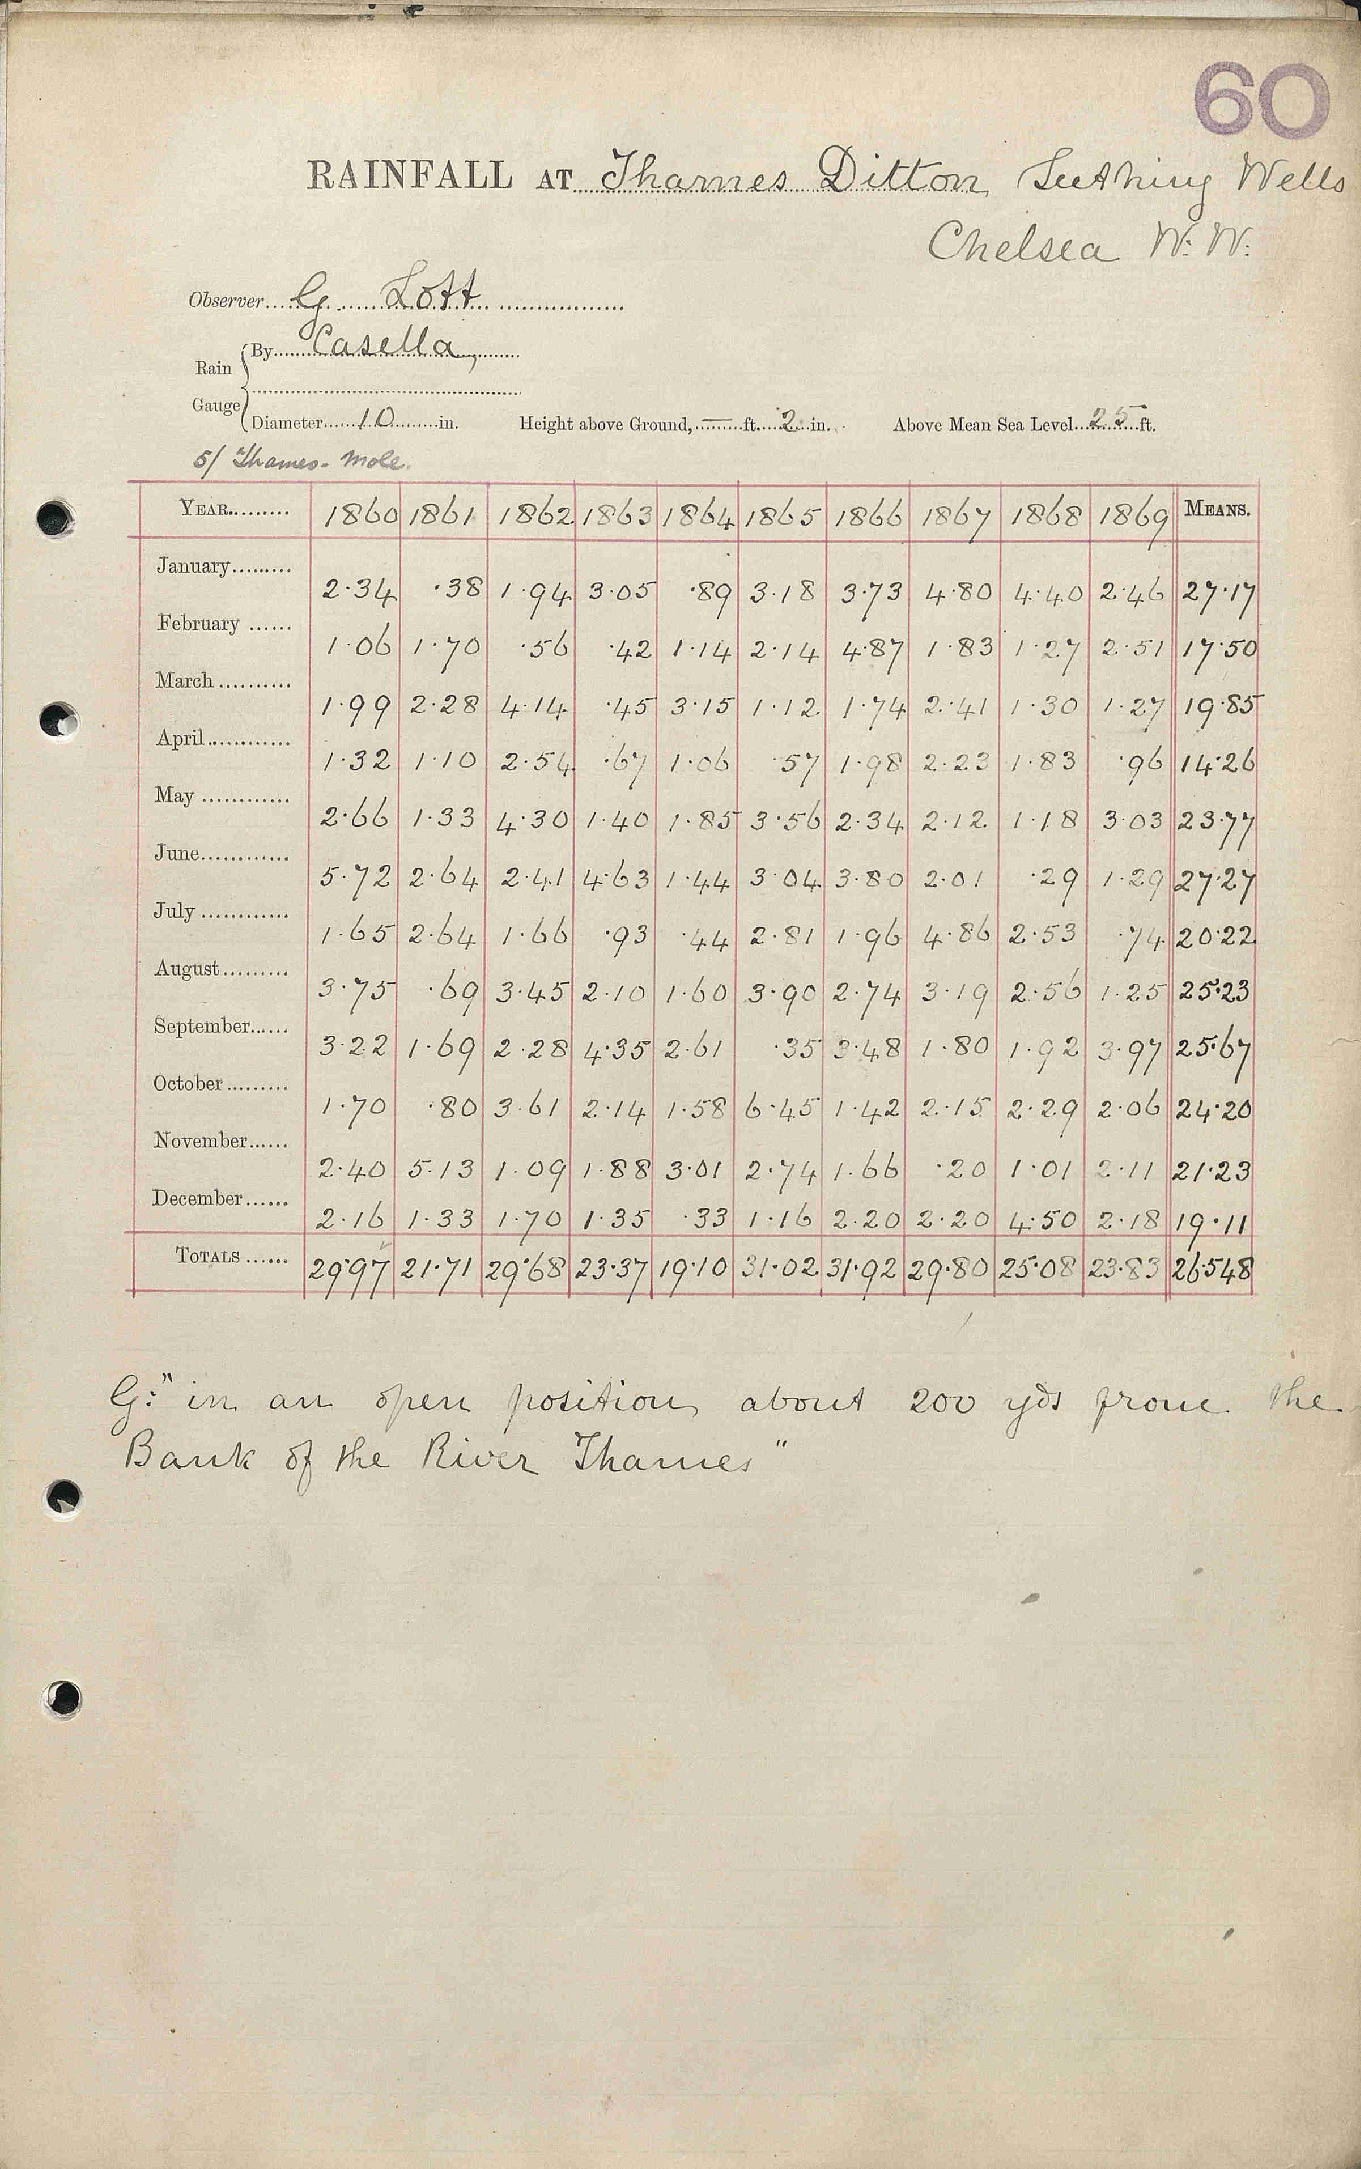 60
RAINFALL AT Thames Ditton Seething Wells
Chelsea W. W.
Observer G Lott
Rain Gauge By Casella
Diameter 10 in. Height above Ground, — ft. 2 in. Above Mean Sea Level 25 ft.
5/ Thames - Mole.
YEAR 1860 1861 1862 1863 1864 1865 1866 1867 1868 1869 MEANS.
January 2.34 .38 1.94 3.05 .89 3.18 3.73 4.80 4.40 2.46 27.17
February 1.06 1.70 .56 .42 1.14 2.14 4.87 1.83 1.27 2.51 17.50
March 1.99 2.28 4.14 .45 3.15 1.12 1.74 2.41 1.30 1.27 19.85
April 1.32 1.10 2.54 .67 1.06 .57 1.98 2.23 1.83 .96 14.26
May 2.66 1.33 4.30 1.40 1.85 3.56 2.34 2.12 1.18 3.03 23.77
June 5.72 2.64 2.41 4.63 1.44 3.04 3.80 2.01 .29 1.29 27.27
July 1.65 2.64 1.66 .93 .44 2.81 1.96 4.86 2.53 .74 20.22
August 3.75 .69 3.45 2.10 1.60 3.90 2.74 3.19 2.56 1.25 25.23
September 3.22 1.69 2.28 4.35 2.61 .35 3.48 1.80 1.92 3.97 25.67
October 1.70 .80 3.61 2.14 1.58 6.45 1.42 2.15 2.29 2.06 24.20
November 2.40 5.13 1.09 1.88 3.01 2.74 1.66 .20 1.01 2.11 21.23
December 2.16 1.33 1.70 1.35 .33 1.16 2.20 2.20 4.50 2.18 19.11
TOTALS 29.97 21.71 29.68 23.37 19.10 31.02 31.92 29.80 25.08 23.83 26.548
G: "in an open position about 200 yds from the
Bank of the River Thames"